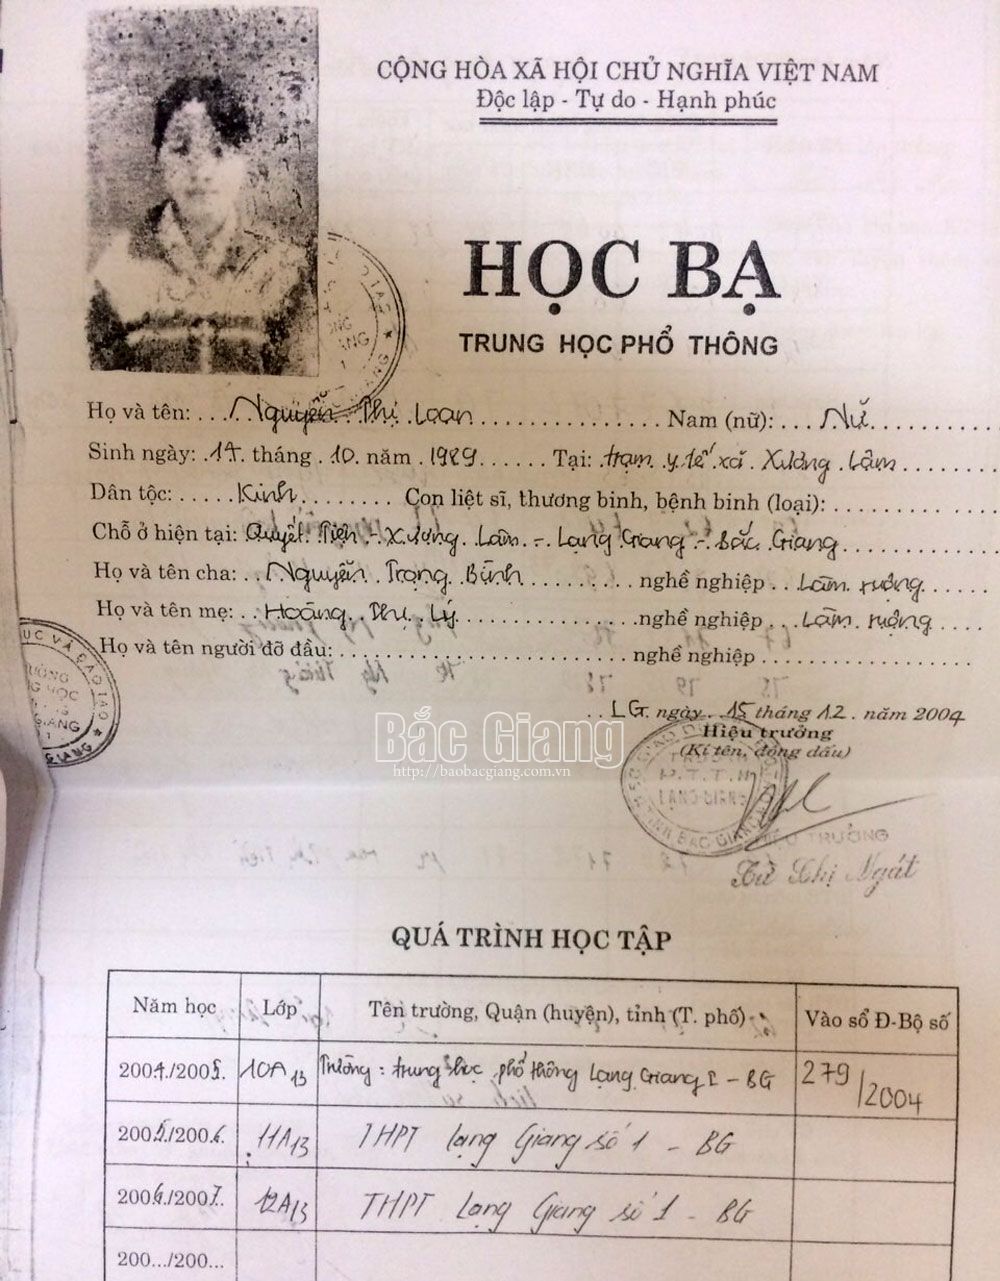 CỘNG HÒA XÃ HỘI CHỦ NGHĨA VIỆT NAM
Độc lập - Tự do - Hạnh phúc
HỌC BẠ
TRUNG HỌC PHỔ THÔNG
Họ và tên: Nguyễn Thị Loan Nam (nữ): Nữ
Sinh ngày: 14 tháng 10 năm 1989 Tại: trạm y tế xã Xương Lâm
Dân tộc: Kinh Con liệt sĩ, thương binh, bệnh binh (loại):
Chỗ ở hiện tại: Quyết Tiến - Xương Lâm - Lạng Giang - Bắc Giang
Họ và tên cha: Nguyễn Trọng Bình nghề nghiệp Làm ruộng
Họ và tên mẹ: Hoàng Thị Lý nghề nghiệp Làm ruộng
Họ và tên người đỡ đầu: nghề nghiệp
LG. ngày 15 tháng 12 năm 2004
Hiệu trưởng
(Kí tên, đóng dấu)
Bắc Giang
http://baobacgiang.com.vn
LẠNG GIANG
HIỆU TRƯỞNG
Thị Ngát
QUÁ TRÌNH HỌC TẬP
Năm học Lớp Tên trường, Quận (huyện), tỉnh (T. phố) Vào sổ Đ-Bộ số
2004/2005. 10A13 Trường: trung học phổ thông Lạng Giang I - BG 279/2004
2005/2006. 11A13 THPT Lạng Giang số 1 - BG
2006/2007. 12A13 THPT Lạng Giang số 1 - BG
200.../200...